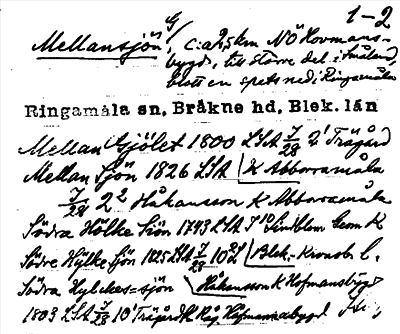 1-2
Mellansjön, G/ c:a 2,5 km NÖ Hovmans-
bygd, till större del i Småland,
blott en spets ned i Ringamåla
Ringamåla sn, Bräkne hd, Blek. län
Mellan Gjölet 1800 LSA 7/28 2' Trägård
Mellan Sjön 1826 LSA K Abborramåla
7/28 2² Håkansson K Abborramåla
Södra Hölke Siön 1743 LSA Geom K
Södre Hylke Sjön 1825 LSA 7/28 10² Blek.- Kronob. l.
Södra Hylckes=sjön Håkansson K Hofmansbygd
1803 LSA 7/28 10' Trägårdh K Råg Hofmannabygd